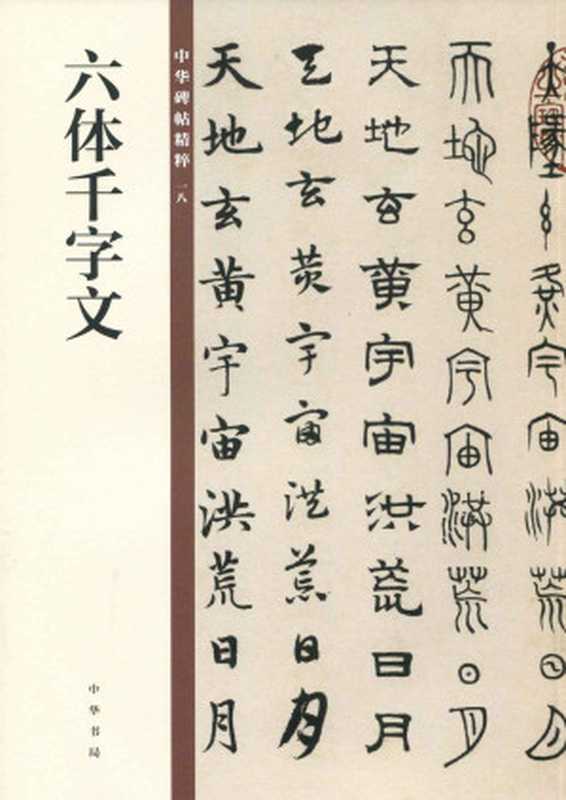 六体千字文
中华碑帖精粹 一八
中华书局
天地玄黄宇宙洪荒日月
天地玄黄宇宙洪荒日月
天地玄黄宇宙洪荒日月
天地玄黄宇宙洪荒日月
天地玄黄宇宙洪荒日月